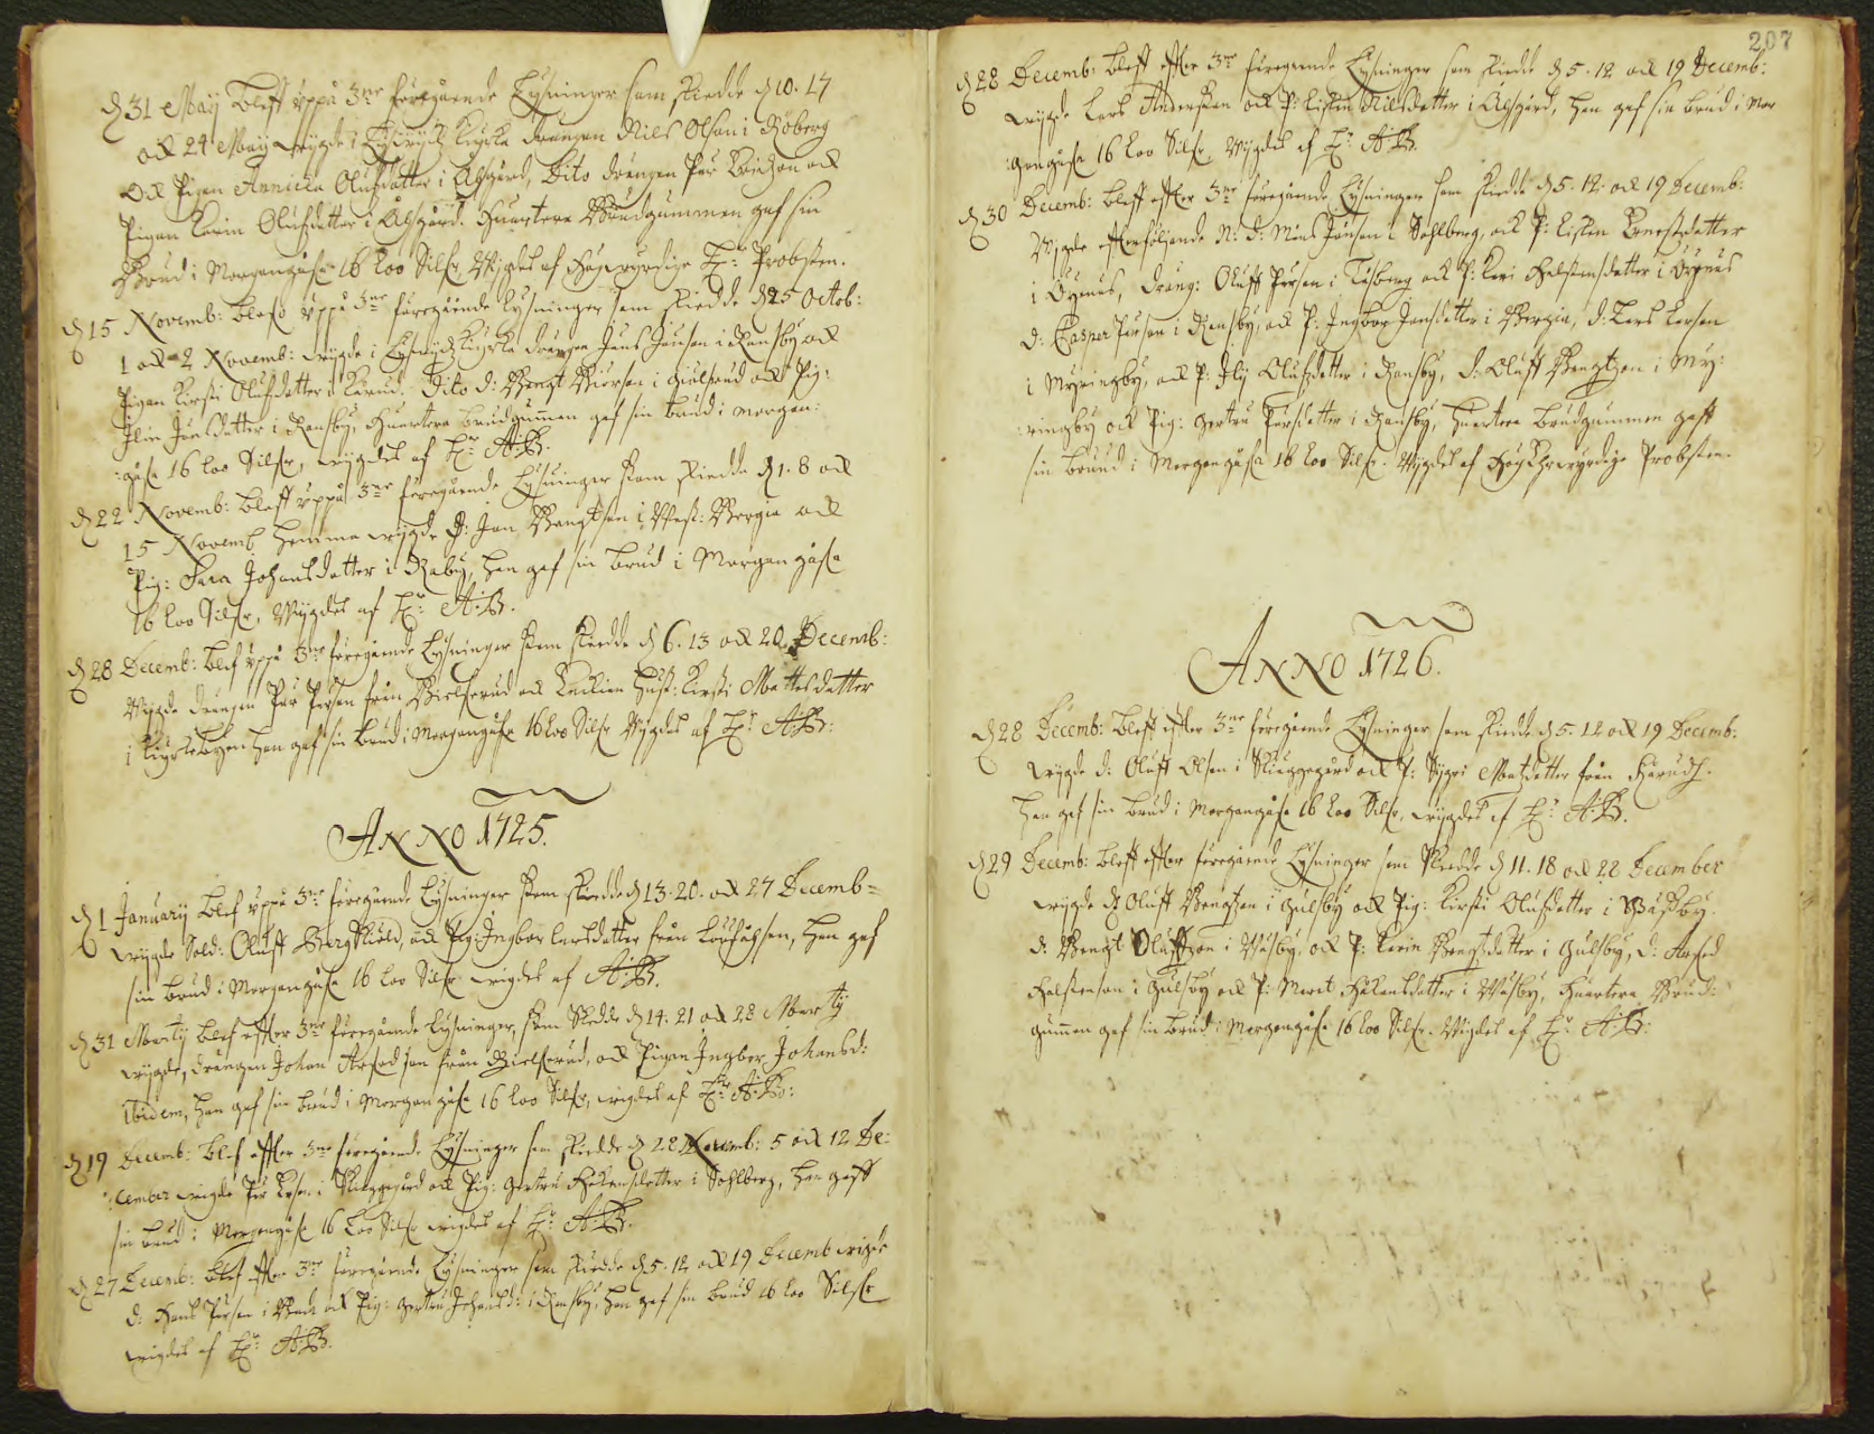 d 31 Maÿ bleff uppå 3ne föregående Lÿsninger som skiedde d 10. 17
ock 24 Maÿ wÿgde i Kÿrcka drängen Nils Olson i Röberg
ock Pigan Annicka Olufzdåtter i Ålgård, Dito drängen Pär ock
Pigan Karin Olufzdåtter i Ålgård. Huartera Brudgummen gaf sin
Brud i Morgongåfa 16 loo Silfr, Wÿgdes af Högwyrdige Hr: Probsten.
d 15 Novemb: blefo uppå 3ne föregående Lÿsninger som skiedde d 25 Octob:
1 ock 2 Novemb: wÿgde i Kÿrcka drängen Jens Jonson i Ransbÿ ock
Pigan Kirsti Olufzdatter i Kärud. Dito d: Bengt i ock Pig:
datter i Ransbÿ, Huartera brudgummen gaf sin brud i morgon:
:gåfa 16 loo Silfr, wÿgdes af Hr: A:B.
d 22 Novemb: bleff uppå 3ne föregående Lÿsninger som skiedde d 1. 8 ock
15 Novemb hemma wÿgde d: Jon Bengtsen i Wäst: Bergia ock
Pig: Johansdatter i Rabÿ, han gaf sin brud i Morgongåfa
16 loo Silfr, Wÿgdes af Hr: A:B.
d 28 Decemb: blef uppå 3ne föregående Lÿsninger som skiedde d 6. 13 ock 20. Decemb:
Wÿgde drängen Pär Persen från Bielkerud ock Enckian hust: Kirsti Mattesdatter
i Kÿrkebÿen han gaf sin brud i Morgongåfa 16 loo Silfr Wÿgdes af Hr A:B:
ANNO 1725.
d 1 Januarÿ blef uppå 3ne föregående Lÿsninger som skiedde d 13. 20. ock 27 Decemb=
wÿgde Sold: Oluff Bergsköld, ock Pig: Ingbor Larsdatter från , han gaf
sin brud i Morgongåfa 16 loo Silfr wigdes af A:B.
d 31 Martÿ blef effter 3ne föregående Lÿsninger, som Skedde d 14. 21 ock 28 Martÿ
wÿgde, drängen Johan Arfwedson från Bielkerud, ock Pigan Ingbor Johansd:
Ibidem, han gaf sin brud i Morgongåfa 16 loo Silfr, wigdes af Hr A:B:
d 19 Decemb: blef effter 3ne föregående Lÿsninger som skiedde d 28 Novemb: 5 ock 12 De:
:cember wigde Pär i Skieggegård ock Pig: Gertru Håkansdatter i Sahlberg, han gaff
sin brud i Morgongåfa 16 loo Silfr wigdes af Hr A:B.
d 27 Decemb: blef effter 3ne föregående Lÿsninger som skiedde d 5. 12 ock 19 Decemb wigde
d: Persen i ock Pig: Gertru Johansd: i Ransbÿ, han gaf sin brud 16 loo Silfr
wigdes af Hr A:B.
207
d 28 Decemb: bleff effter 3ne föregående Lÿsninger som skiedde d 5. 12 ock 19 Decemb:
wÿgde Lars Anderson ock P: Nilsdatter i Ålgård, han gaf sin brud i Mor
:gongåfa 16 loo Silfr Wÿgdes af Hr A:B.
d 30 Decemb: bleff effter 3ne föregående Lÿsninger som skiedde d 5. 12. ock 19 Decemb:
Wÿgde effterföljande N: d: Måns Jönson i Sahlberg, ock P: datter
i , dräng: Oluff Person i Tåsberg ock P: Kari Halstensdatter i
d: Casper Person i Ransbÿ, ock P: Ingbor Jonsdatter i Bergia, d: Lars Larson
i Mÿringbÿ, ock P: Olufzdatter i Ransbÿ, d: Oluff Bengtzon i Mÿ:
:ringbÿ ock Pig: Gertru Persdatter i Ransbÿ, Huartera brudgummen gaff
sin bruud i Morgongåfa 16 loo Silfr. Wÿgdes af Probsten.
ANNO 1726.
d 28 Decemb: bleff effter 3ne föregående Lÿsninger som skiedde d 5. 12 ock 19 Decemb:
wÿgde d: Oluff Olson i Skieggegård ock P: Sigri Matzdatter från Kärud.
han gaf sin brud i Morgongåfa 16 loo Silfr, wÿgdes af Hr A:B.
d 29 Decemb: bleff effter föregående Lÿsninger som Skedde d 11. 18 ock 22 December
wÿgde d: Oluff Bengtzon i Gulsbÿ ock Pig: Kirsti Olufzdatter i Wåsbÿ.
d: Bengt Oluffzon i Wåsbÿ, ock P: Karin Bengtzdatter i Gulsbÿ, d: Arfwed
Halstenson i Gulsbÿ ock P: Marit Håkansdatter i Wåsbÿ, Huartera Brud:
gummen gaf sin brud i Morgongåfa 16 loo Silfr. Wigdes af Hr A:B: